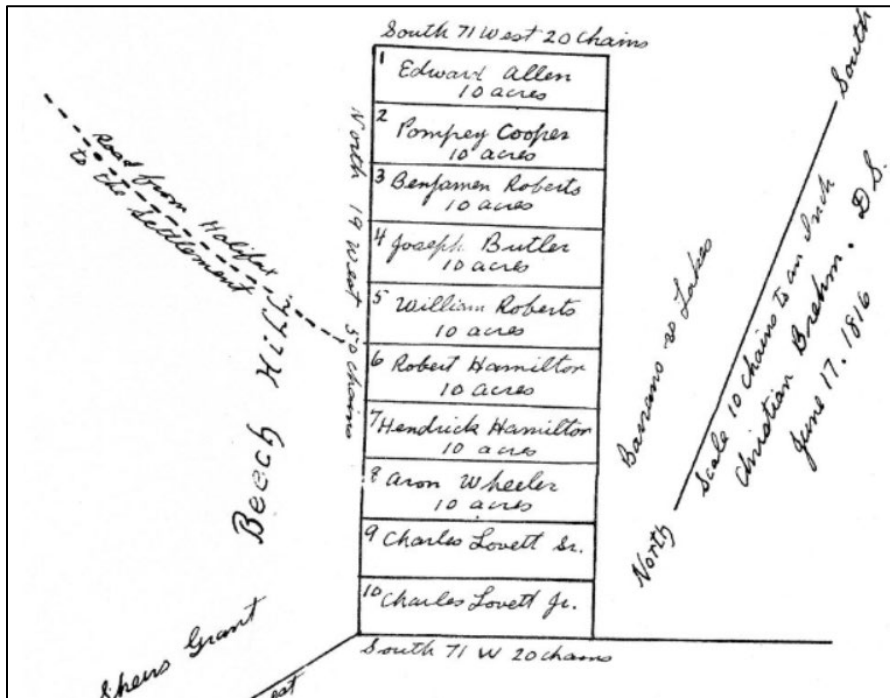 South 71 West 20 Chains
1 Edward Allen
10 acres
2 Pompey Cooper
10 acres
3 Benjamen Roberts
10 acres
4 Joseph Butler
10 acres
5 William Roberts
10 acres
6 Robert Hamilton
10 acres
7 Hendrick Hamilton
10 acres
8 Aron Wheeler
10 acres
9 Charles Lovett Sr.
10 Charles Lovett Jr.
South 71 W 20 chains
North 19 West 50 chains
Road from Halifax
to the Settlement
Beech Hill
Grant
Lakes
North
South
Scale 10 chains to an Inch
Christian Brehm. D S.
June 17. 1816